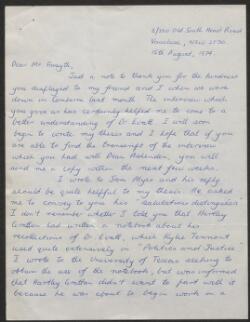 2/220 Old South Head Road
Vaucluse, NSW 2030.
15th August, 1974.
Dear Mr. Forsyth,
Just a note to thank you for the kindness
you displayed to my friend and I when we were
down in Canberra last month. The interview which
you gave us has certainly helped me to come to a
better understanding of Dr Evatt. I will soon
begin to write my thesis and I hope that if you
are able to find the transcript of the interview
which you had with Dean Acheson, you will
send me a copy within the next few weeks.
I wrote to Sam Atyeo and his reply
should be quite helpful to my thesis. He asked
me to convey to you his "salutations distinguées"
I don't remember whether I told you that Hartley
Grattan had written a notebook about his
recollections of Dr Evatt, which Kylie Tennant
used quite extensively in "Politics and Justice".
I wrote to the University of Texas seeking to
obtain the use of the notebook, but was informed
that Hartley Grattan didn't want to part with it
because he was about to begin work on a